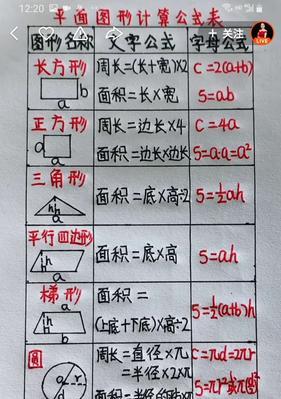 12:20
75%
平面图形计算公式表
+ 关注
LIVE
图形名称 文字公式 字母公式
长方形 周长=(长+宽)×2 C=2(a+b)
b
a
面积=长×宽 S=ab
正方形 周长=边长×4 C=4a
a
a
面积=边长×边长 S=a·a=a²
三角形
h
a
面积=底×高÷2 S=½ah
平行四边形
h
a
面积=底×高 S=ah
梯形 面积=
a
h
b
(上底+下底)×高÷2 S=½(a+b)h
圆 周长=直径×π C=πd=2πr
=半径×2×π
d r
面积=半径的